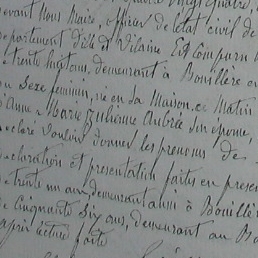 vingt quatre,
devant Nous Maire, officier de l'état civil de
département d'ille et Vilaine Est comparu
trente huit ans, demeurant à Bouillère en
sexe feminin, née en Sa Maison, ce Matin
d'Anne Marie Julienne Aubrée Son épouse,
declaré vouloir donner les prenoms de
declaration et presentation faites en presen
de trente un ans demeurant aussi à Bouillère
de Cinquante Six ans, demeurant au
après lecture faite